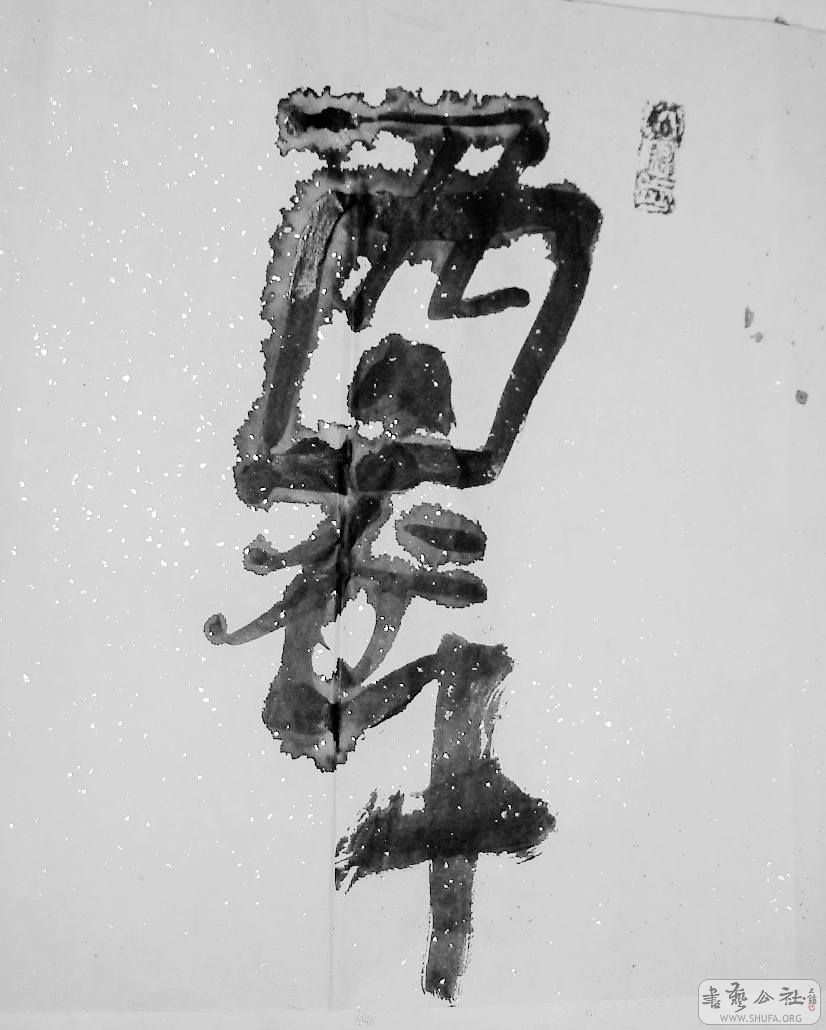 醉
書藝公社
WWW.SHUFA.ORG